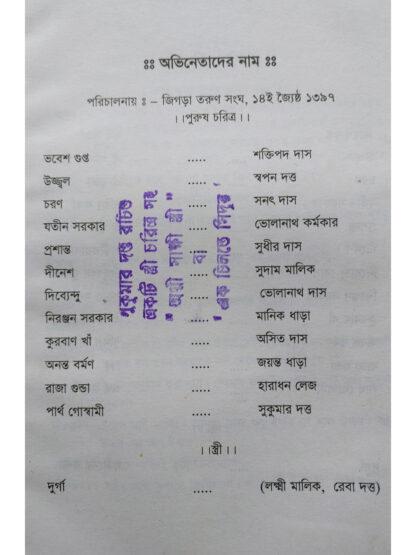 ঃঃ অভিনেতাদের নাম ঃঃ
পরিচালনায় ঃ – জিগড়া তরুণ সংঘ, ১৪ই জ্যৈষ্ঠ ১৩৯৭
।।পুরুষ চরিত্র।।
ভবেশ গুপ্ত ..... শক্তিপদ দাস
উজ্জ্বল ..... স্বপন দত্ত
চরণ ..... সনৎ দাস
যতীন সরকার ..... ভোলানাথ কর্মকার
প্রশান্ত ..... সুধীর দাস
দীনেশ ..... সুদাম মালিক
দিব্যেন্দু ..... ভোলানাথ দাস
নিরঞ্জন সরকার ..... মানিক ধাড়া
কুরবাণ খাঁ ..... অসিত দাস
অনন্ত বর্মণ ..... জয়ন্ত ধাড়া
রাজা গুন্ডা ..... হারাধন লেজ
পার্থ গোস্বামী ..... সুকুমার দত্ত
।।স্ত্রী।।
দুর্গা ..... (লক্ষ্মী মালিক, রেবা দত্ত)
সুকুমার দত্ত রচিত
একটি স্ত্রী চরিত্র সহ
" অগ্নী সাক্ষী স্ত্রী "
বা
' এক চিলতে সিঁদুর '